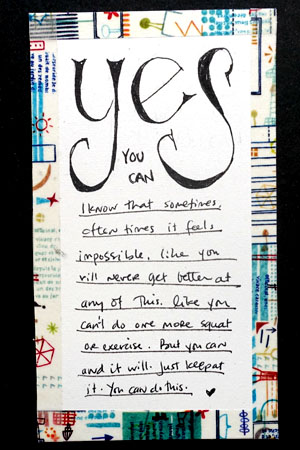 yes
YOU
CAN
I know that sometimes,
often times it feels
impossible, like you
will never get better at
any of this. like you
can't do one more squat
or exercise. But you can
and it will. Just keep at
it. You can do this.